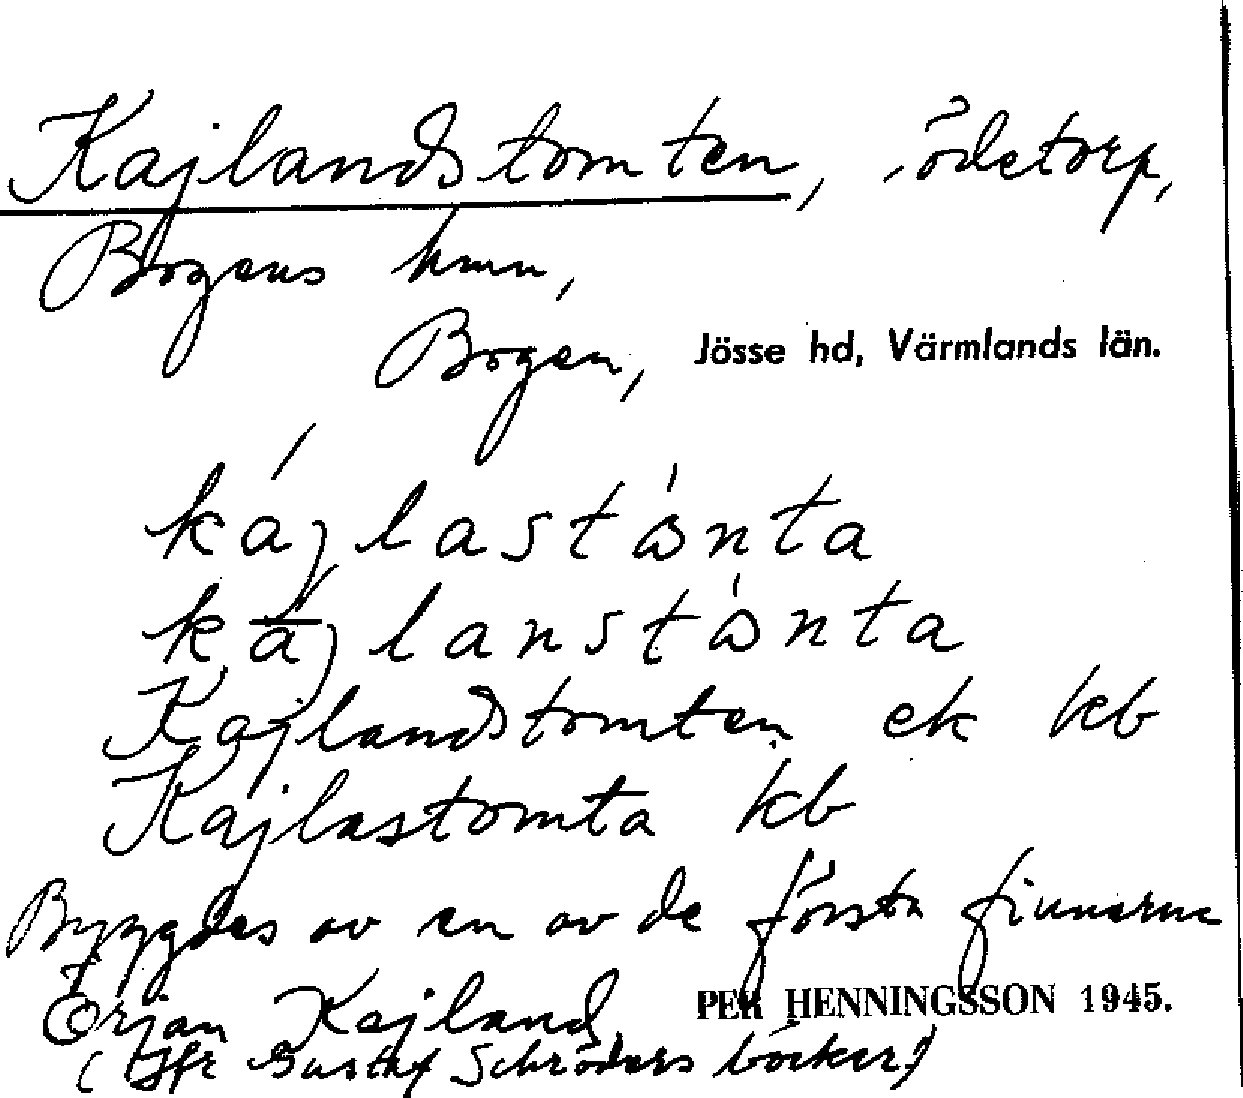 Kajlandstomten, ödetorp,
Bogens hmn,
Bogen, Jösse hd, Värmlands län.
kájlastònta
kájlanstònta
Kajlandstomten ek kb
Kajlastomta kb
Byggdes av en av de första finnarne
Örjan Kajland PER HENNINGSSON 1945.
(Jfr Gustaf Schröders böcker!)